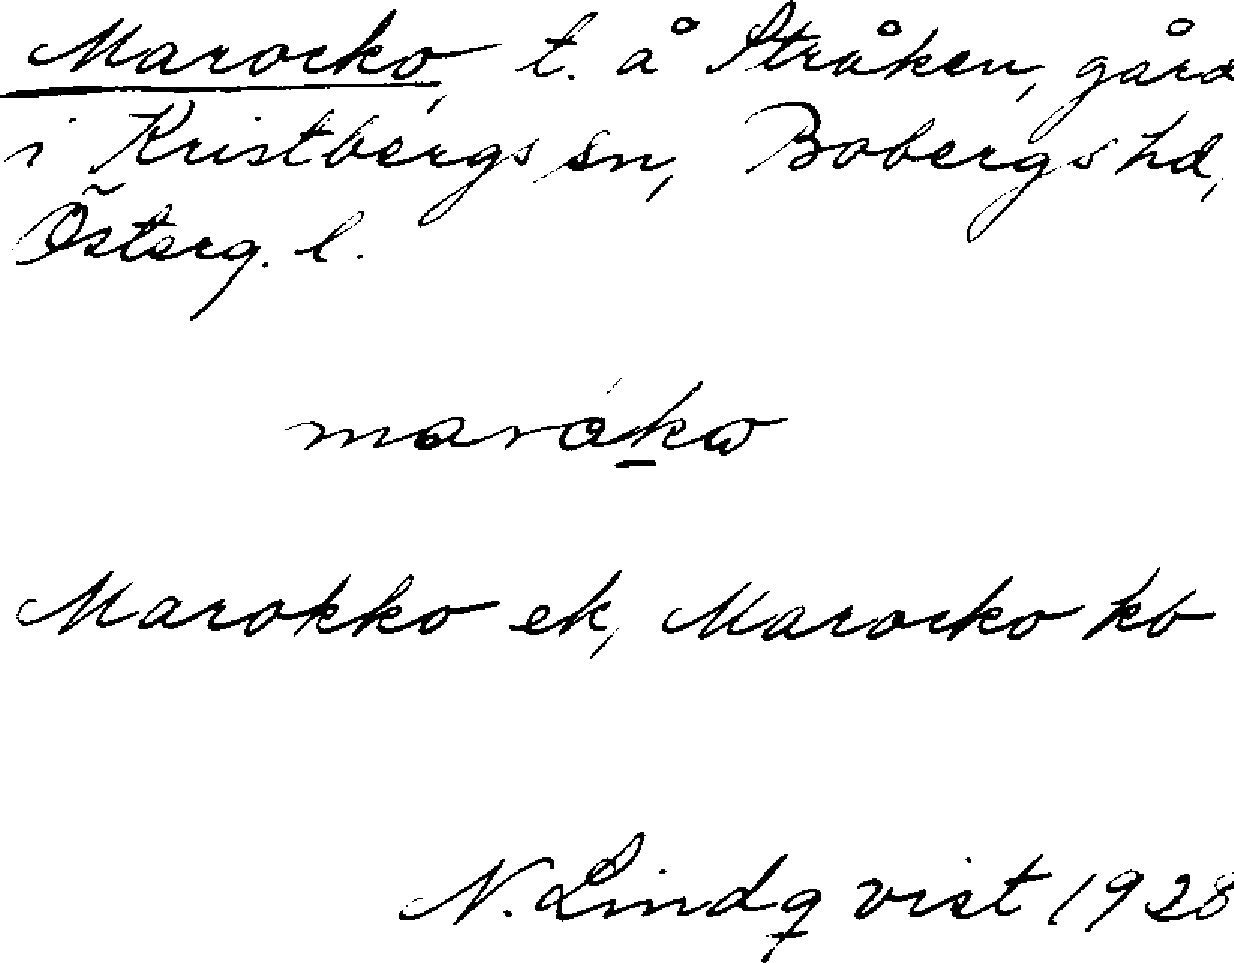 Marocko, t. å Stråken, gård
i Kristbergs sn, Bobergs hd,
Österg. l.
maråkω
Marokko ek, Marocko kb
N. Lindqvist 1928